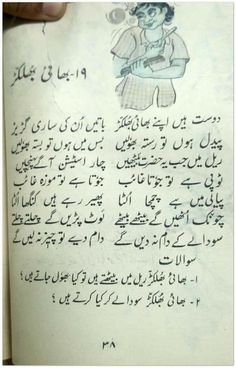 ۱۹-بھائی بھلکڑ
دوست ہیں اپنے بھائی بھلکڑ باتیں اُن کی ساری گڑبڑ
پیدل ہوں تو رستہ بھولیں بس میں ہوں تو بستہ بھولیں
ریل میں جب یہ حضرت بیٹھیں چار اسٹیشن آگے پہنچیں
ٹوپی ہے تو جوتا غائب جوتا ہے تو موزہ غائب
پیالی میں ہے چمچا اُلٹا پھیر رہے ہیں کنگھا اُلٹا
چونک اُٹھیں گے بیٹھے بیٹھے لوٹ پڑیں گے چلتے چلتے
سودا لے کے دام نہ دیں گے دام دیے تو چیز نہ لیں گے
سوالات
۱- بھائی بھلکڑ ریل میں بیٹھتے ہیں تو کیا بھول جاتے ہیں؟
۲- بھائی بھلکڑ سودا لے کر کیا کرتے ہیں؟
۳۸